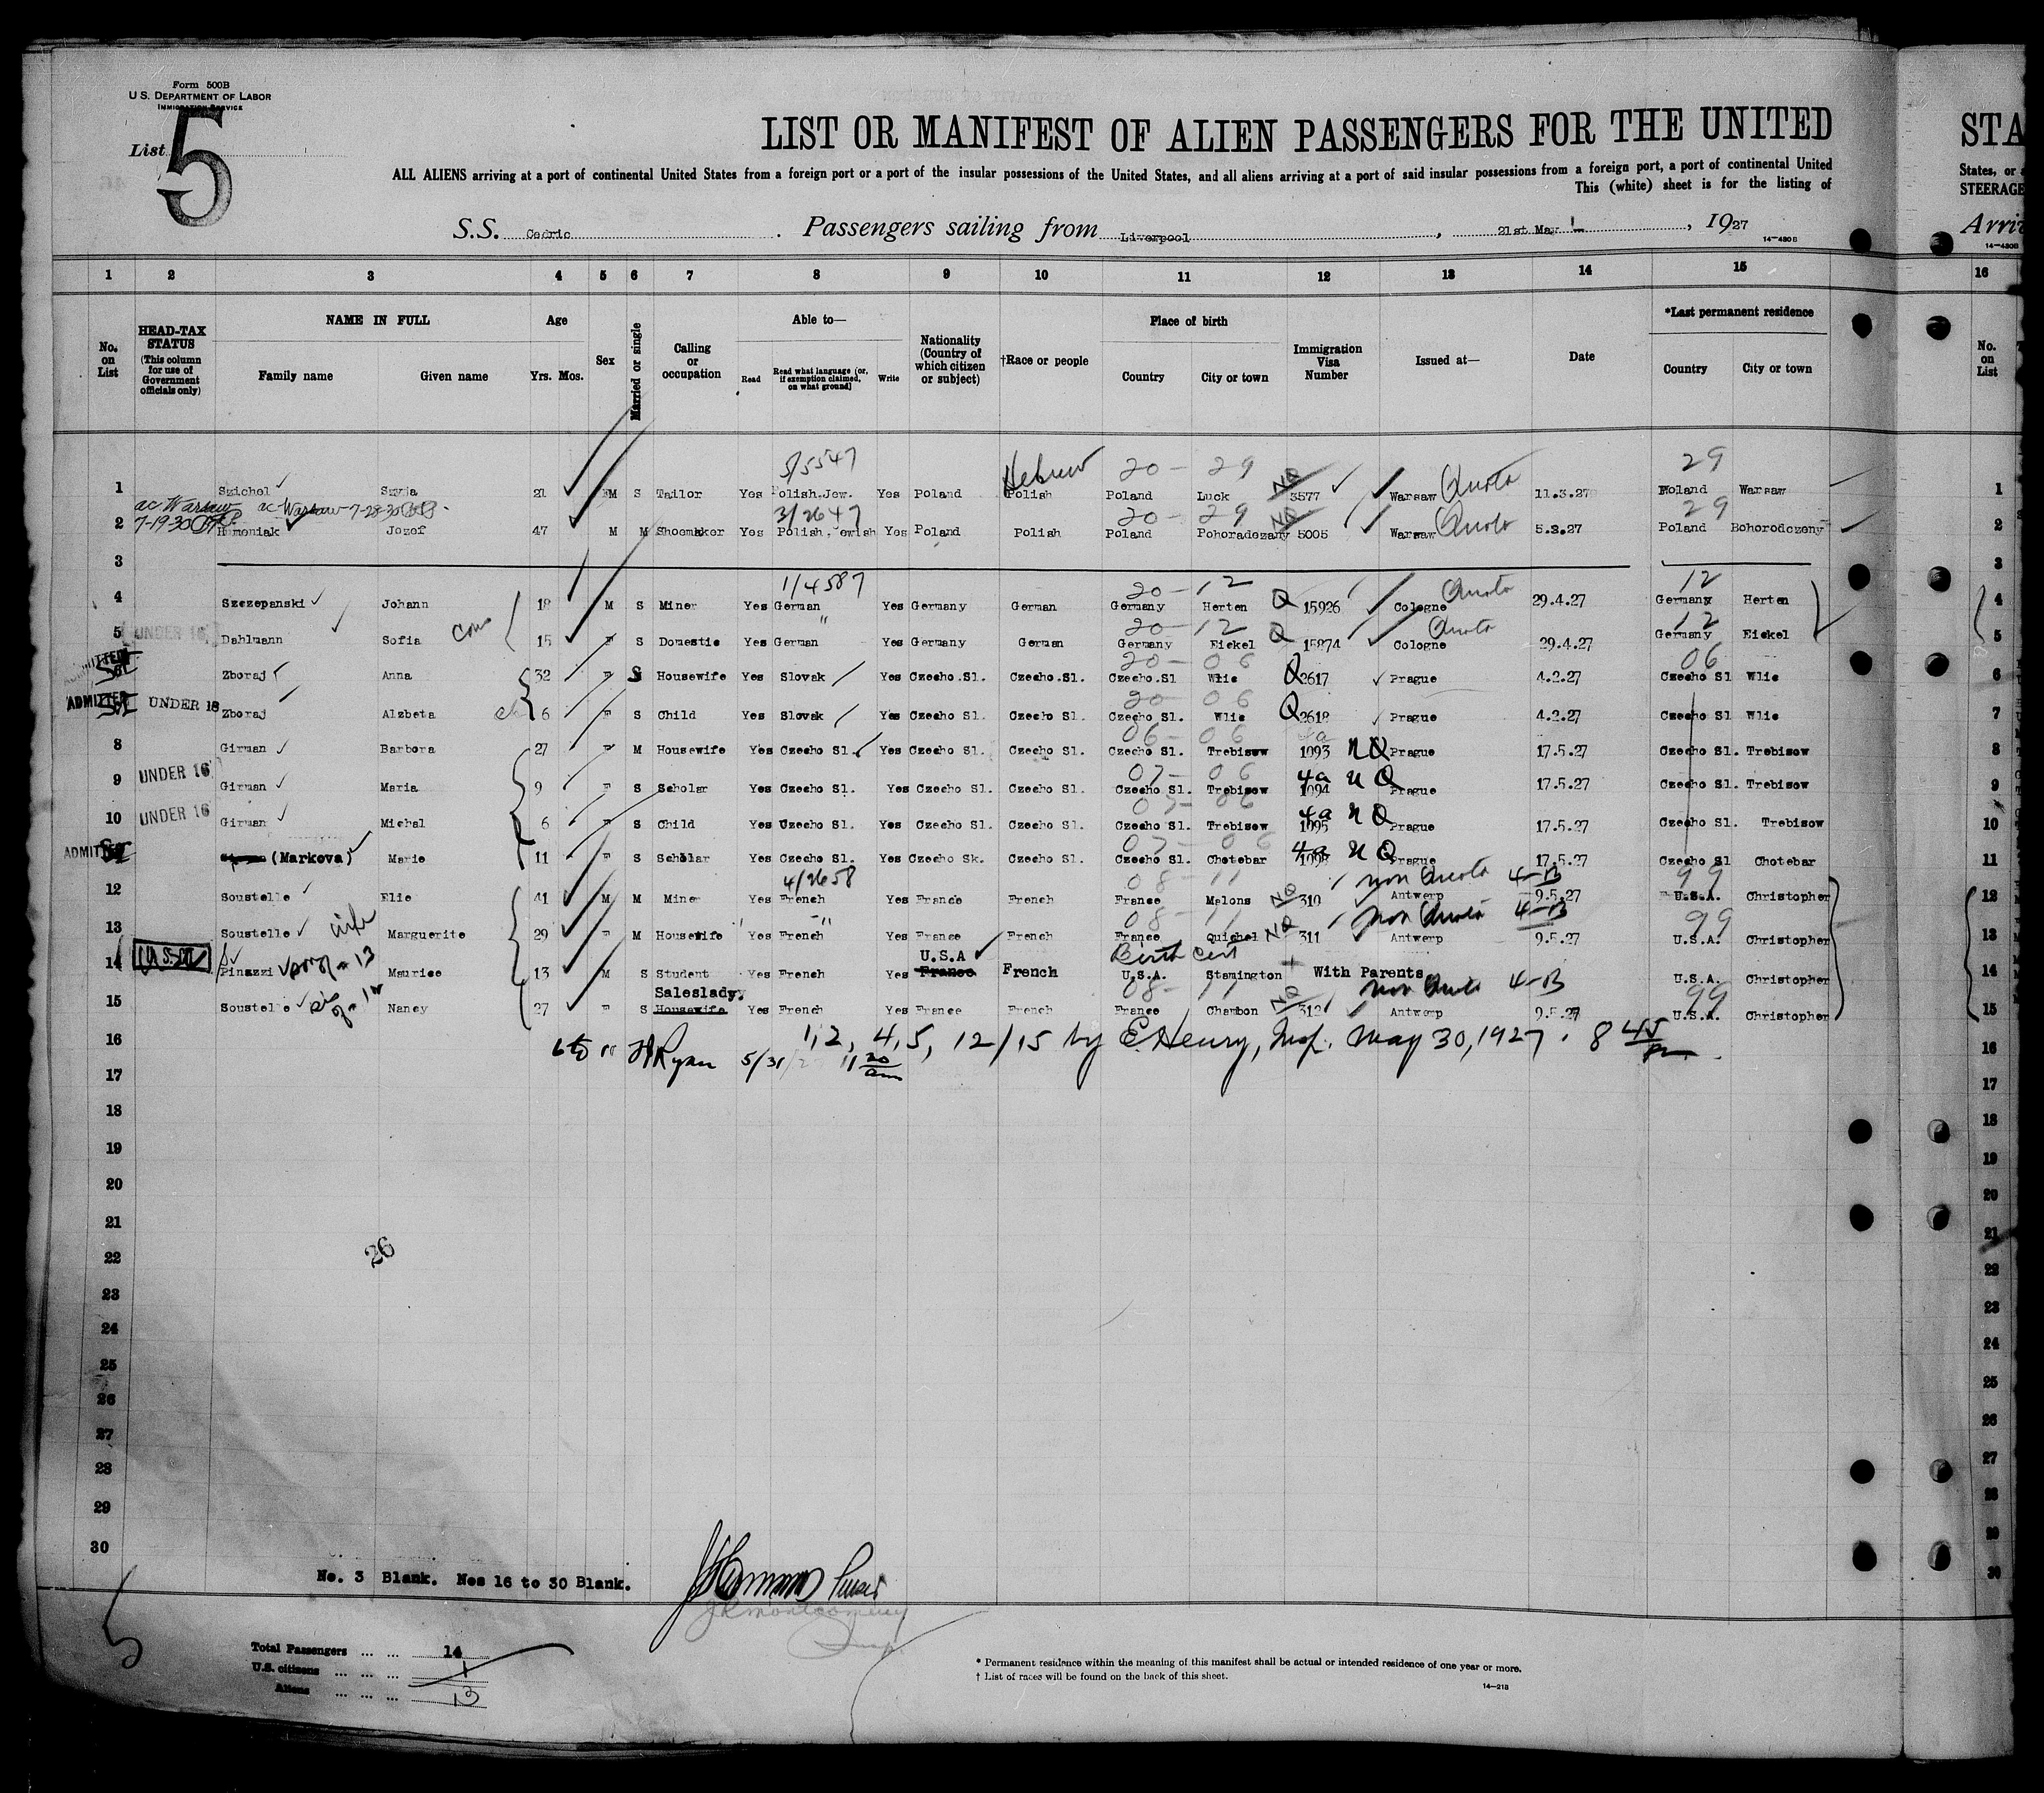 Form 500B
U.S. DEPARTMENT OF LABOR
IMMIGRATION SERVICE
List 5
LIST OR MANIFEST OF ALIEN PASSENGERS FOR THE UNITED
STA
ALL ALIENS arriving at a port of continental United States from a foreign port or a port of the insular possessions of the United States, and all aliens arriving at a port of said insular possessions from a foreign port, a port of continental United
States, or
This (white) sheet is for the listing of
STEERAGE
S.S. Cedric. Passengers sailing from Liverpool, 21st May, 1927
14—430B
1 2 3 4 5 6 7 8 9 10 11 12 13 14 15 16
No. on List
HEAD-TAX STATUS (This column for use of Government officials only)
NAME IN FULL
Family name Given name
Age
Yrs. Mos.
Sex
Married or single
Calling or occupation
Able to—
Read Read what language (or, if exemption claimed, on what ground) Write
Nationality (Country of which citizen or subject)
†Race or people
Place of birth
Country City or town
Immigration Visa Number
Issued at—
Date
*Last permanent residence
Country City or town
No. on List
5/5547 Hebrew 20 - 29 NQ Quota 29
1 Szichel Szyja 21 M S Tailor Yes Polish.Jew. Yes Poland Polish Poland Luck 3577 Warsaw 11.3.27 Poland Warsaw 1
ac Warsaw ac Warsaw 7-28-30
7-19-30 3/2647 20 - 29 NQ Quota 29
2 Humeniak Jozef 47 M M Shoemaker Yes Polish. Yes Poland Polish Poland Pohoradezany 5005 Warsaw 5.3.27 Poland Bohorodczeny 2
3 3
1/4587 20 - 12 Quota 12
4 Szczepanski Johann 18 M S Miner Yes German Yes Germany German Germany Herten Q 15926 Cologne 29.4.27 Germany Herten 4
UNDER 16 20 - 12 Quota 12
5 Dahlmann Sofia 15 F S Domestic Yes German Yes Germany German Germany Eickel Q 15874 Cologne 29.4.27 Germany Eickel 5
ADMITTED 20 - 06 06
Zboraj Anna 32 F S Housewife Yes Slovak Yes Czecho.Sl. Czecho.Sl. Czecho.Sl Wlic Q 2617 Prague 4.2.27 Czecho Sl Wlic 6
ADMITTED UNDER 16 20 06
Zboraj Alzbeta 6 F S Child Yes Slovak Yes Czecho Sl. Czecho Sl. Czecho Sl. Wlic Q 2618 Prague 4.2.27 Czecho Sl Wlic 7
06 - 06
8 Girman Barbora 27 F M Housewife Yes Czecho Sl. Yes Czecho Sl. Czecho Sl. Czecho Sl. Trebisow 1093 NQ Prague 17.5.27 Czecho Sl. Trebisow 8
UNDER 16 07 - 06 4a NQ
9 Girman Maria 9 F S Scholar Yes Czecho Sl. Yes Czecho Sl. Czecho Sl. Czecho Sl. Trebisow 1094 Prague 17.5.27 Czecho Sl. Trebisow 9
UNDER 16 4a NQ
10 Girman Michal 6 F S Child Yes Czecho Sl. Yes Czecho Sl. Czecho Sl. Czecho Sl. Trebisow 1095 Prague 17.5.27 Czecho Sl. Trebisow 10
ADMITTED 07 - 06 4a NQ
(Markova) Marie 11 F S Scholar Yes Czecho Sl. Yes Czecho Sk. Czecho Sl. Czecho Sl. Chotebar Prague 17.5.27 Czecho Sl Chotebar 11
4/2658 08 - 11 NQ non Quota 4-B 99
12 Soustelle Elie 41 M M Miner Yes French Yes France French France Malons 310 Antwerp 9.5.27 U.S.A. Christopher 12
wife 08 - 11 NQ non Quota 4-B 99
13 Soustelle Marguerite 29 F M Housewife Yes French Yes France French France Quichel 311 Antwerp 9.5.27 U.S.A. Christopher 13
U.S.A Birth Cert
14 Pinazzi Maurice 13 M S Student Yes French Yes France French U.S.A. Stamington With Parents U.S.A. Christopher 14
Saleslady. 08 - 11 NQ non Quota 4-B 99
15 Soustelle Nancy 27 F S Housewife Yes French Yes France French France Chambon 312 Antwerp 9.5.27 U.S.A. Christopher 15
16 1, 2, 4, 5, 12/15 by E Henry, Insp. May 30, 1927. 8 45 pm. 16
6 to 11 Ryan 5/31/2 11 20 am
17 17
18 18
19 19
20 20
21 21
22 26 22
23 23
24 24
25 25
26 26
27 27
28 28
29 29
30 30
No. 3 Blank. Nos 16 to 30 Blank.
Purser
JR Montgomery
Insp
Total Passengers ... ... 14
U.S. citizens ... ... ... 1
Aliens ... ... ... 13
* Permanent residence within the meaning of this manifest shall be actual or intended residence of one year or more.
† List of races will be found on the back of this sheet.
14—213